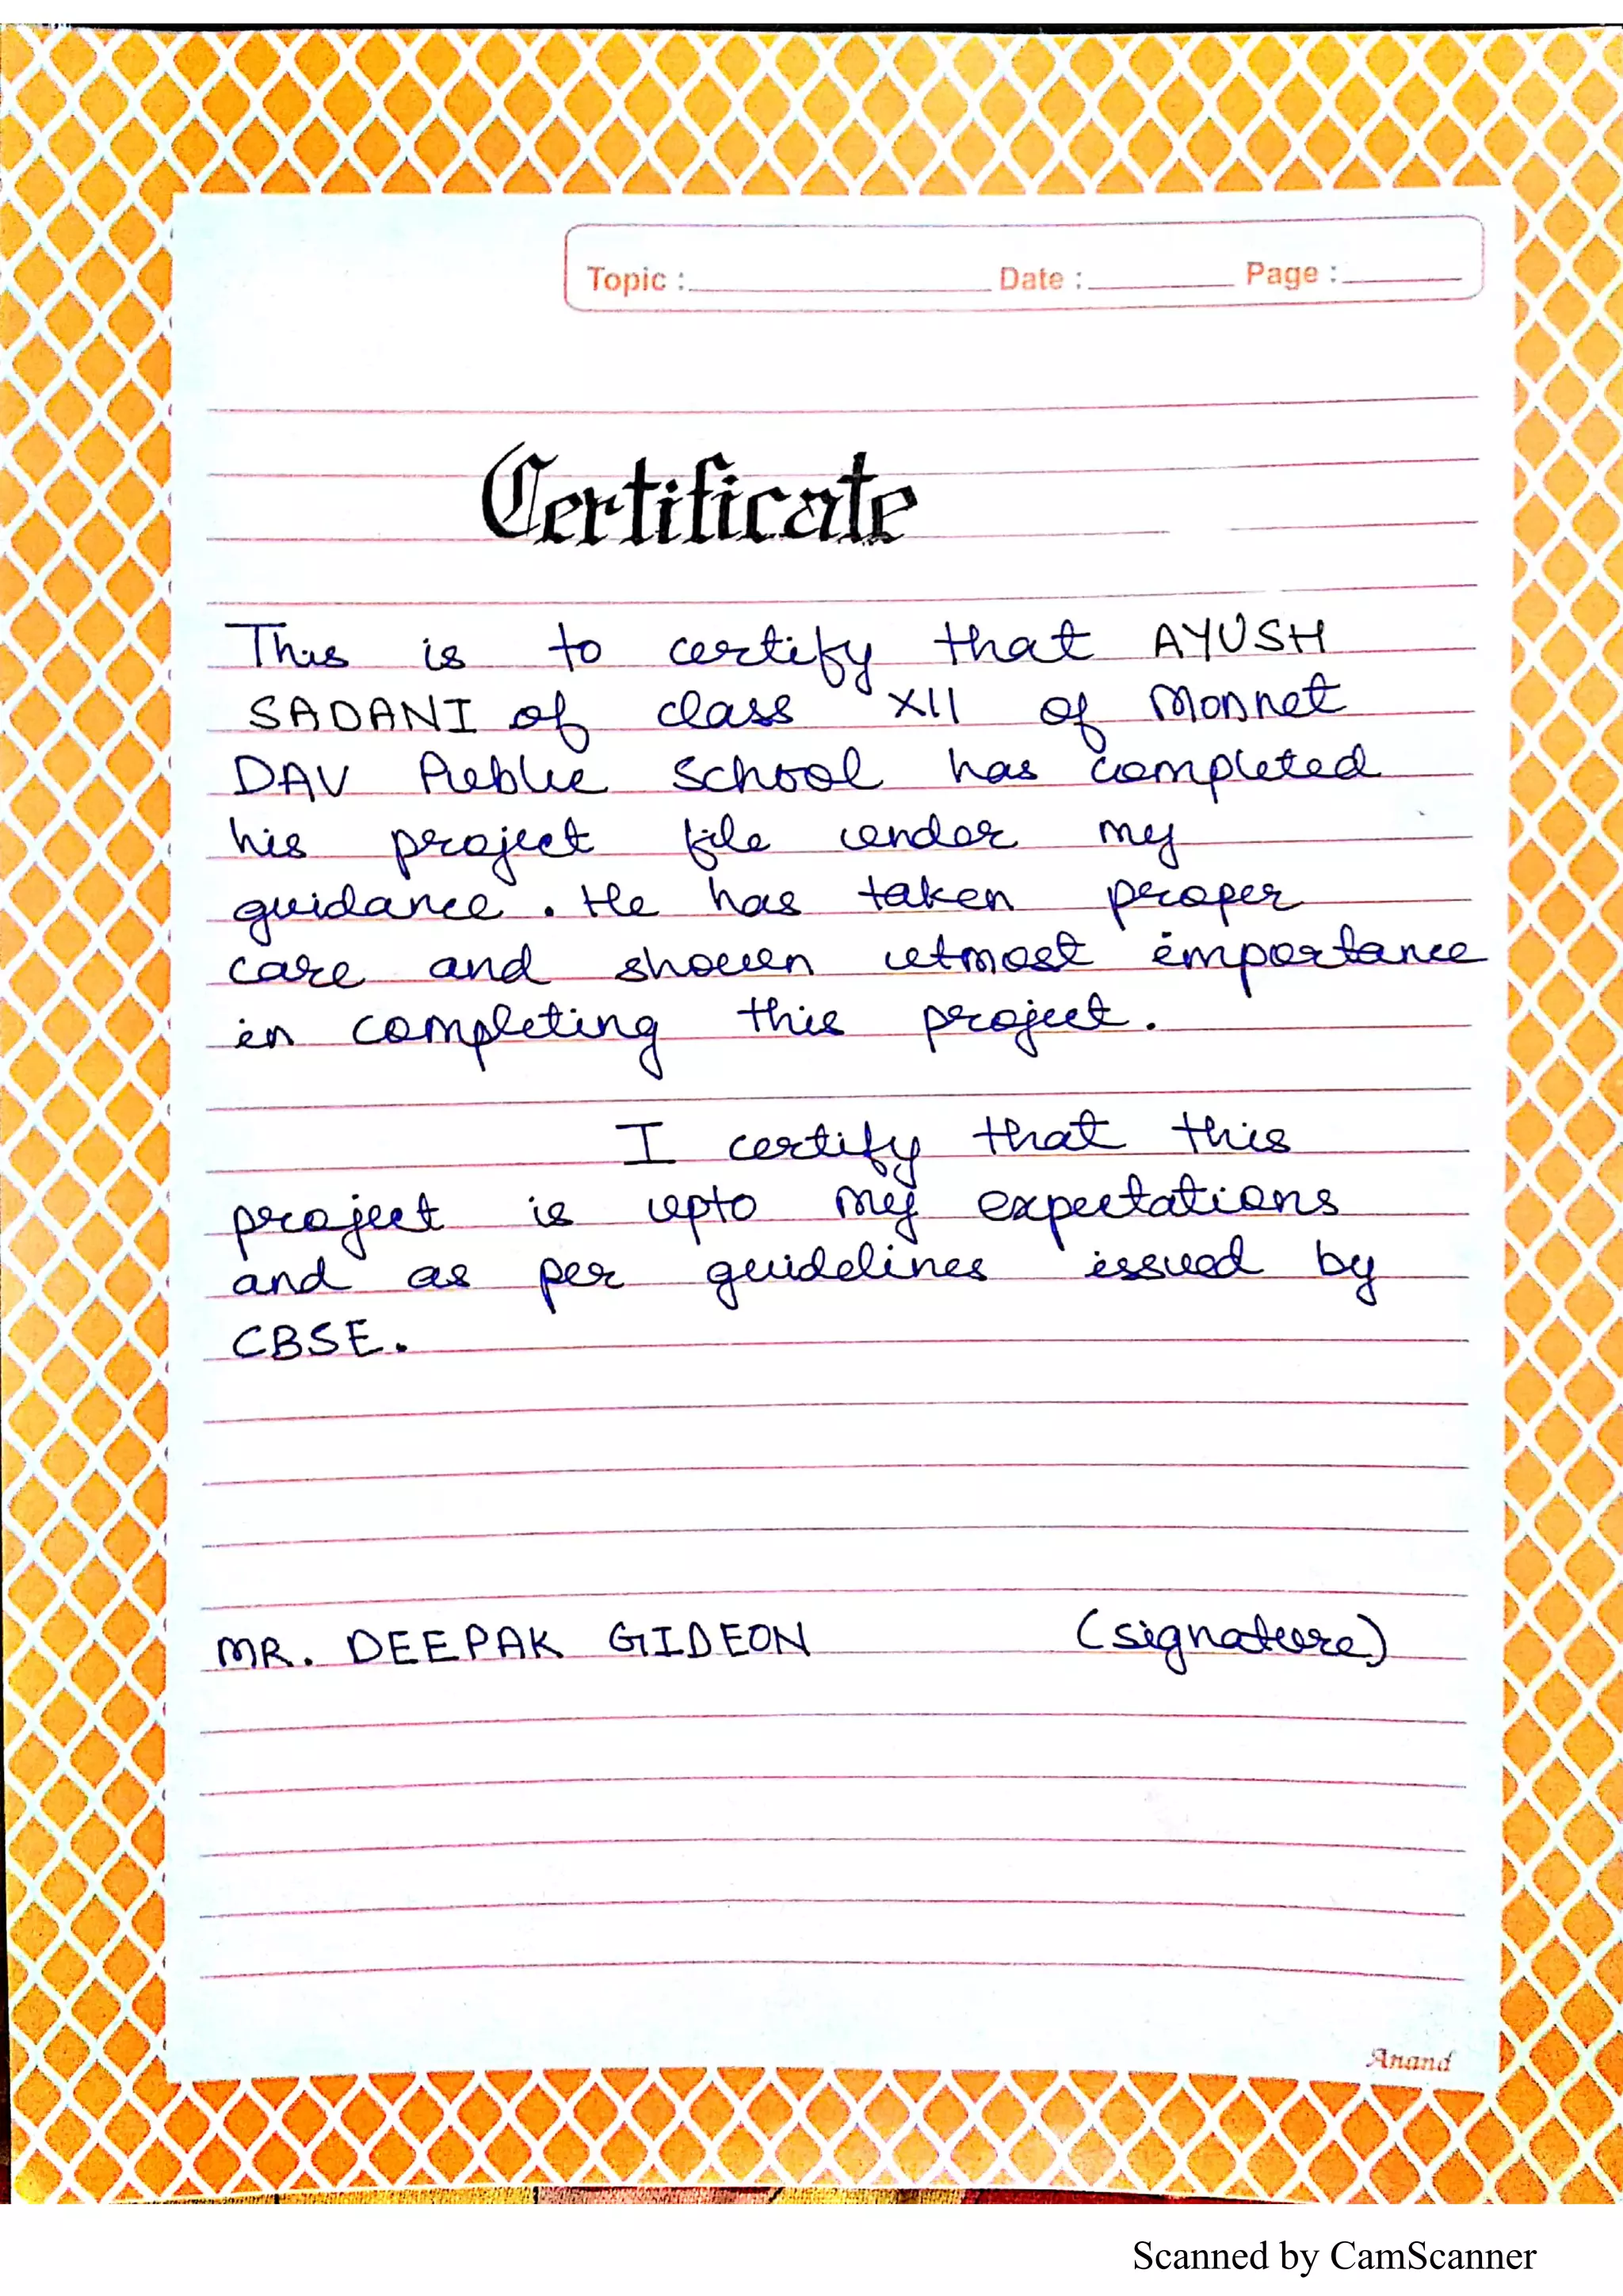 Topic : Date : Page :
Certificate
This is to certify that AYUSH
SADANI of class XII of Monnet
DAV Public School has completed
his project file under my
guidance. He has taken proper
care and shown utmost importance
in completing this project.
I certify that this
project is upto my expectations
and as per guidelines issued by
CBSE.
MR. DEEPAK GIDEON (signature)
Anand
Scanned by CamScanner